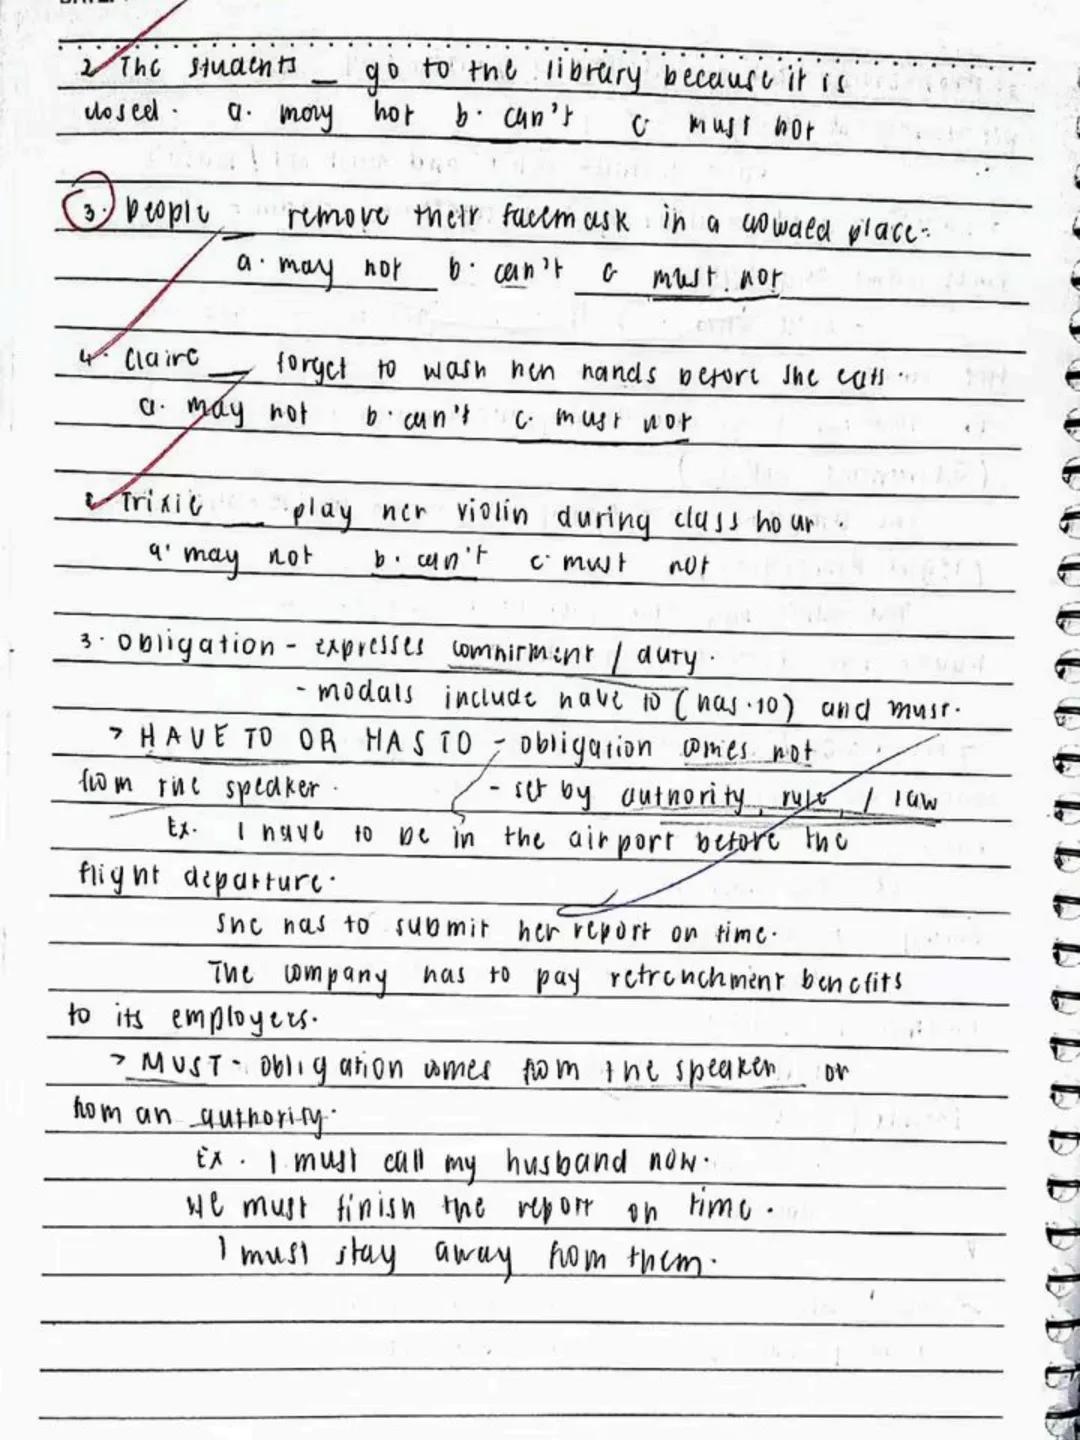 2. The students __ go to the library because it is
closed. a. may not b. can't c. must not
3. People __ remove their facemask in a crowded place.
a. may not b. can't c. must not
4. Claire __ forget to wash her hands before she eats.
a. may not b. can't c. must not
Trixie __ play her violin during class hour.
a. may not b. can't c. must not
3. Obligation - expresses commitment / duty.
- modals include have to (has to) and must.
> HAVE TO OR HAS TO - obligation comes not
from the speaker. - set by authority, rule / law
Ex. I have to be in the airport before the
flight departure.
She has to submit her report on time.
The company has to pay retrenchment benefits
to its employers.
> MUST - obligation comes from the speaker or
from an authority.
Ex. I must call my husband now.
We must finish the report on time.
I must stay away from them.